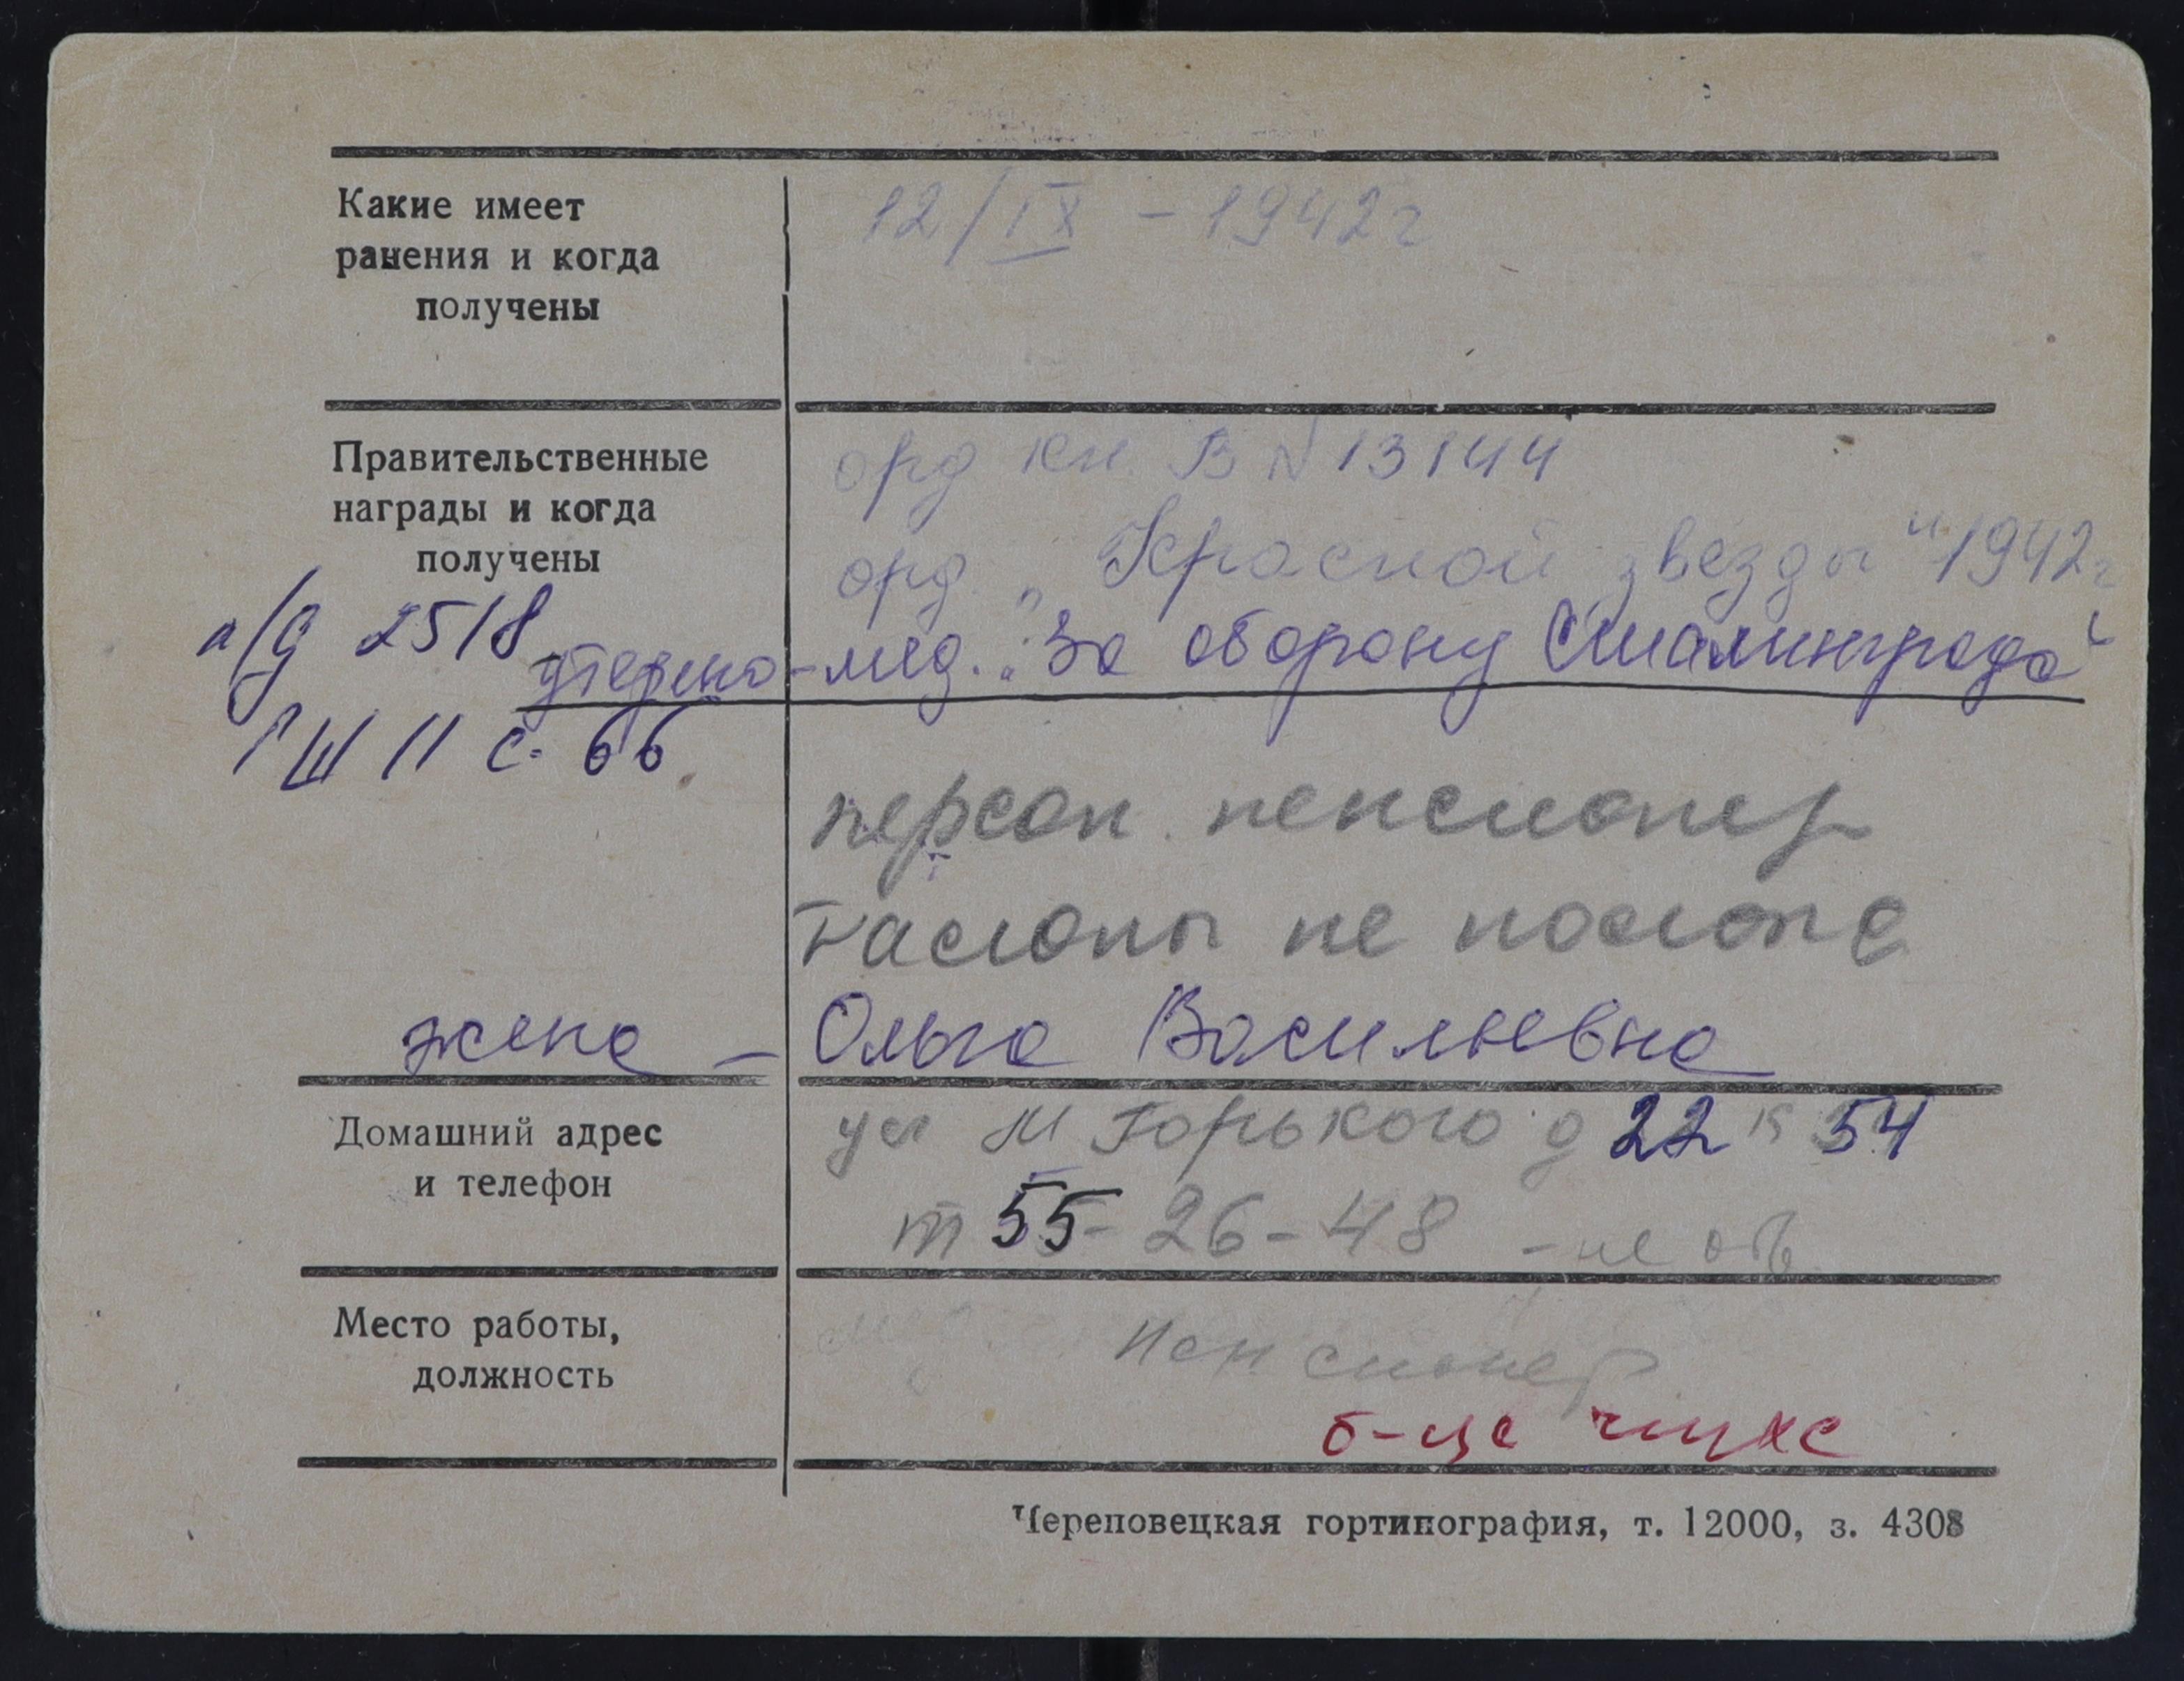 Какие имеет
ранения и когда
получены
12/IX - 1942 г
Правительственные
награды и когда
получены
орд Кр. В N 13144
орд. „Красной звезды" 1942 г
а/д 2518
утеряно - мед. „За оборону Сталинграда"
1 Ш 11 с. 66
персон. пенсионер
талоны не
жена - Ольга Васильевна
Домашний адрес
и телефон
ул М Горького д 22 к 54
т 55-26-48 - не отв
Место работы,
должность
Пенсионер
Череповецкая гортипография, т. 12000, з. 4308